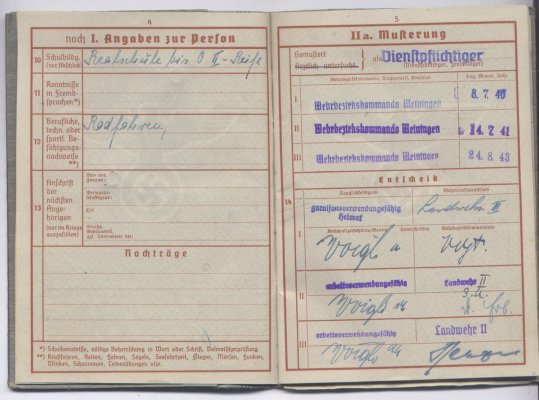 4
noch I. Angaben zur Person
10 Schulbldg. (nur Abschluß)
Realschule bis O II-Reife
11 Kenntnisse in Fremdsprachen*)
12 Berufliche, techn. oder sportl. Befähigungsnachweise **)
Radfahren,
13 Anschrift der nächsten Angehörigen (nur im Kriege auszufüllen)
Vor- und Zuname:
Ort
Nachträge
*) Schulkenntnisse, völlige Beherrschung in Wort oder Schrift, Dolmetscherprüfung.
**) Kraftfahren, Reiten, Fahren, Segeln, Seefahrtzeit, Fliegen, Morsen, Funken,
Winken, Schwimmen, Leibesübungen usw.
5
IIa. Musterung
Gemustert
Ärztlich untersucht
als
Dienstpflichtiger
(Dienstpflichtiger, Freiwilliger)
Tag, Monat, Jahr
I Wehrbezirkskommando Meiningen 8.7.40
II Wehrbezirkskommando Meiningen 14.7.41
III Wehrbezirkskommando Meiningen 24.8.43
Entscheid
14
Tauglichkeitsgrad Wehrdienstverhältnis
I garnisonverwendungsfähig Heimat
Landwehr II
Voigt
II arbeitsverwendungsfähig Landwehr II
Voigt
III arbeitsverwendungsfähig Landwehr II
Voigt